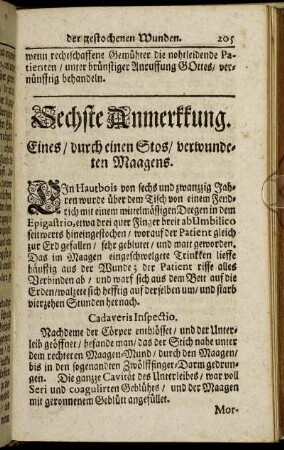 der gestochenen Wunden. 205
wenn rechtschaffene Gemühter die nohtleidende Pa-
tienten / unter brünstiger Anruffung GOttes / ver-
nünfftig behandeln.
Sechste Anmerkkung.
Eines / durch einen Stos / verwunde-
ten Maagens.
EIn Hautbois von sechs und zwanzzig Jah-
ren wurde über dem Tisch von einem Fend-
rich mit einem mittelmässigen Deegen in dem
Epigastrio, etwa drei quer Finger breit ab Umbilico
seitwerts hineingestochen / worauf der Patient gleich
zur Erd gefallen / sehr geblutet / und matt geworden.
Das im Maagen eingeschwelgete Trinkken lieffe
häuffig aus der Wunde; der Patient risse alles
Verbinden ab / und warf sich aus dem Bett auf die
Erden / walzete sich hefftig auf derselben um / und starb
vierzehen Stunden hernach.
Cadaveris Inspectio.
Nachdeme der Cörper entblösset / und der Unter-
leib geöffnet / befande man / das der Stich nahe unter
dem rechteren Maagen-Mund / durch den Maagen /
bis in den sogenandten Zwölfffinger-Darm gedrun-
gen. Die ganzze Cavität des Unterleibes / war voll
Seri und coagulirten Geblühts / und der Maagen
mit geronnenem Geblütt angefüllet.
Mor-